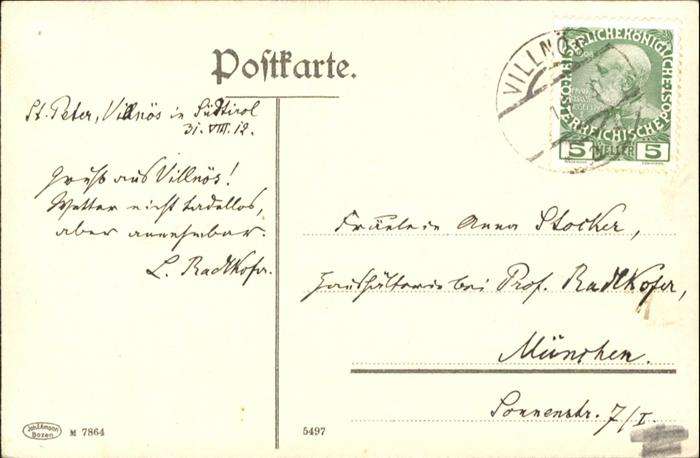 Postkarte.
St. Peter, Villnös in Südtirol
31. VIII. 12.
Gruß aus Villnös!
Wetter nicht tadellos,
aber annehmbar.
L. Radlkofer.
VILLNÖ
5 HELLER 5
Fräulein Anna Stocker,
Haushälterin bei Prof. Radlkofer,
München.
Sonnenstr. 7/I.
Joh. F. Amonn
Bozen
M 7864
5497